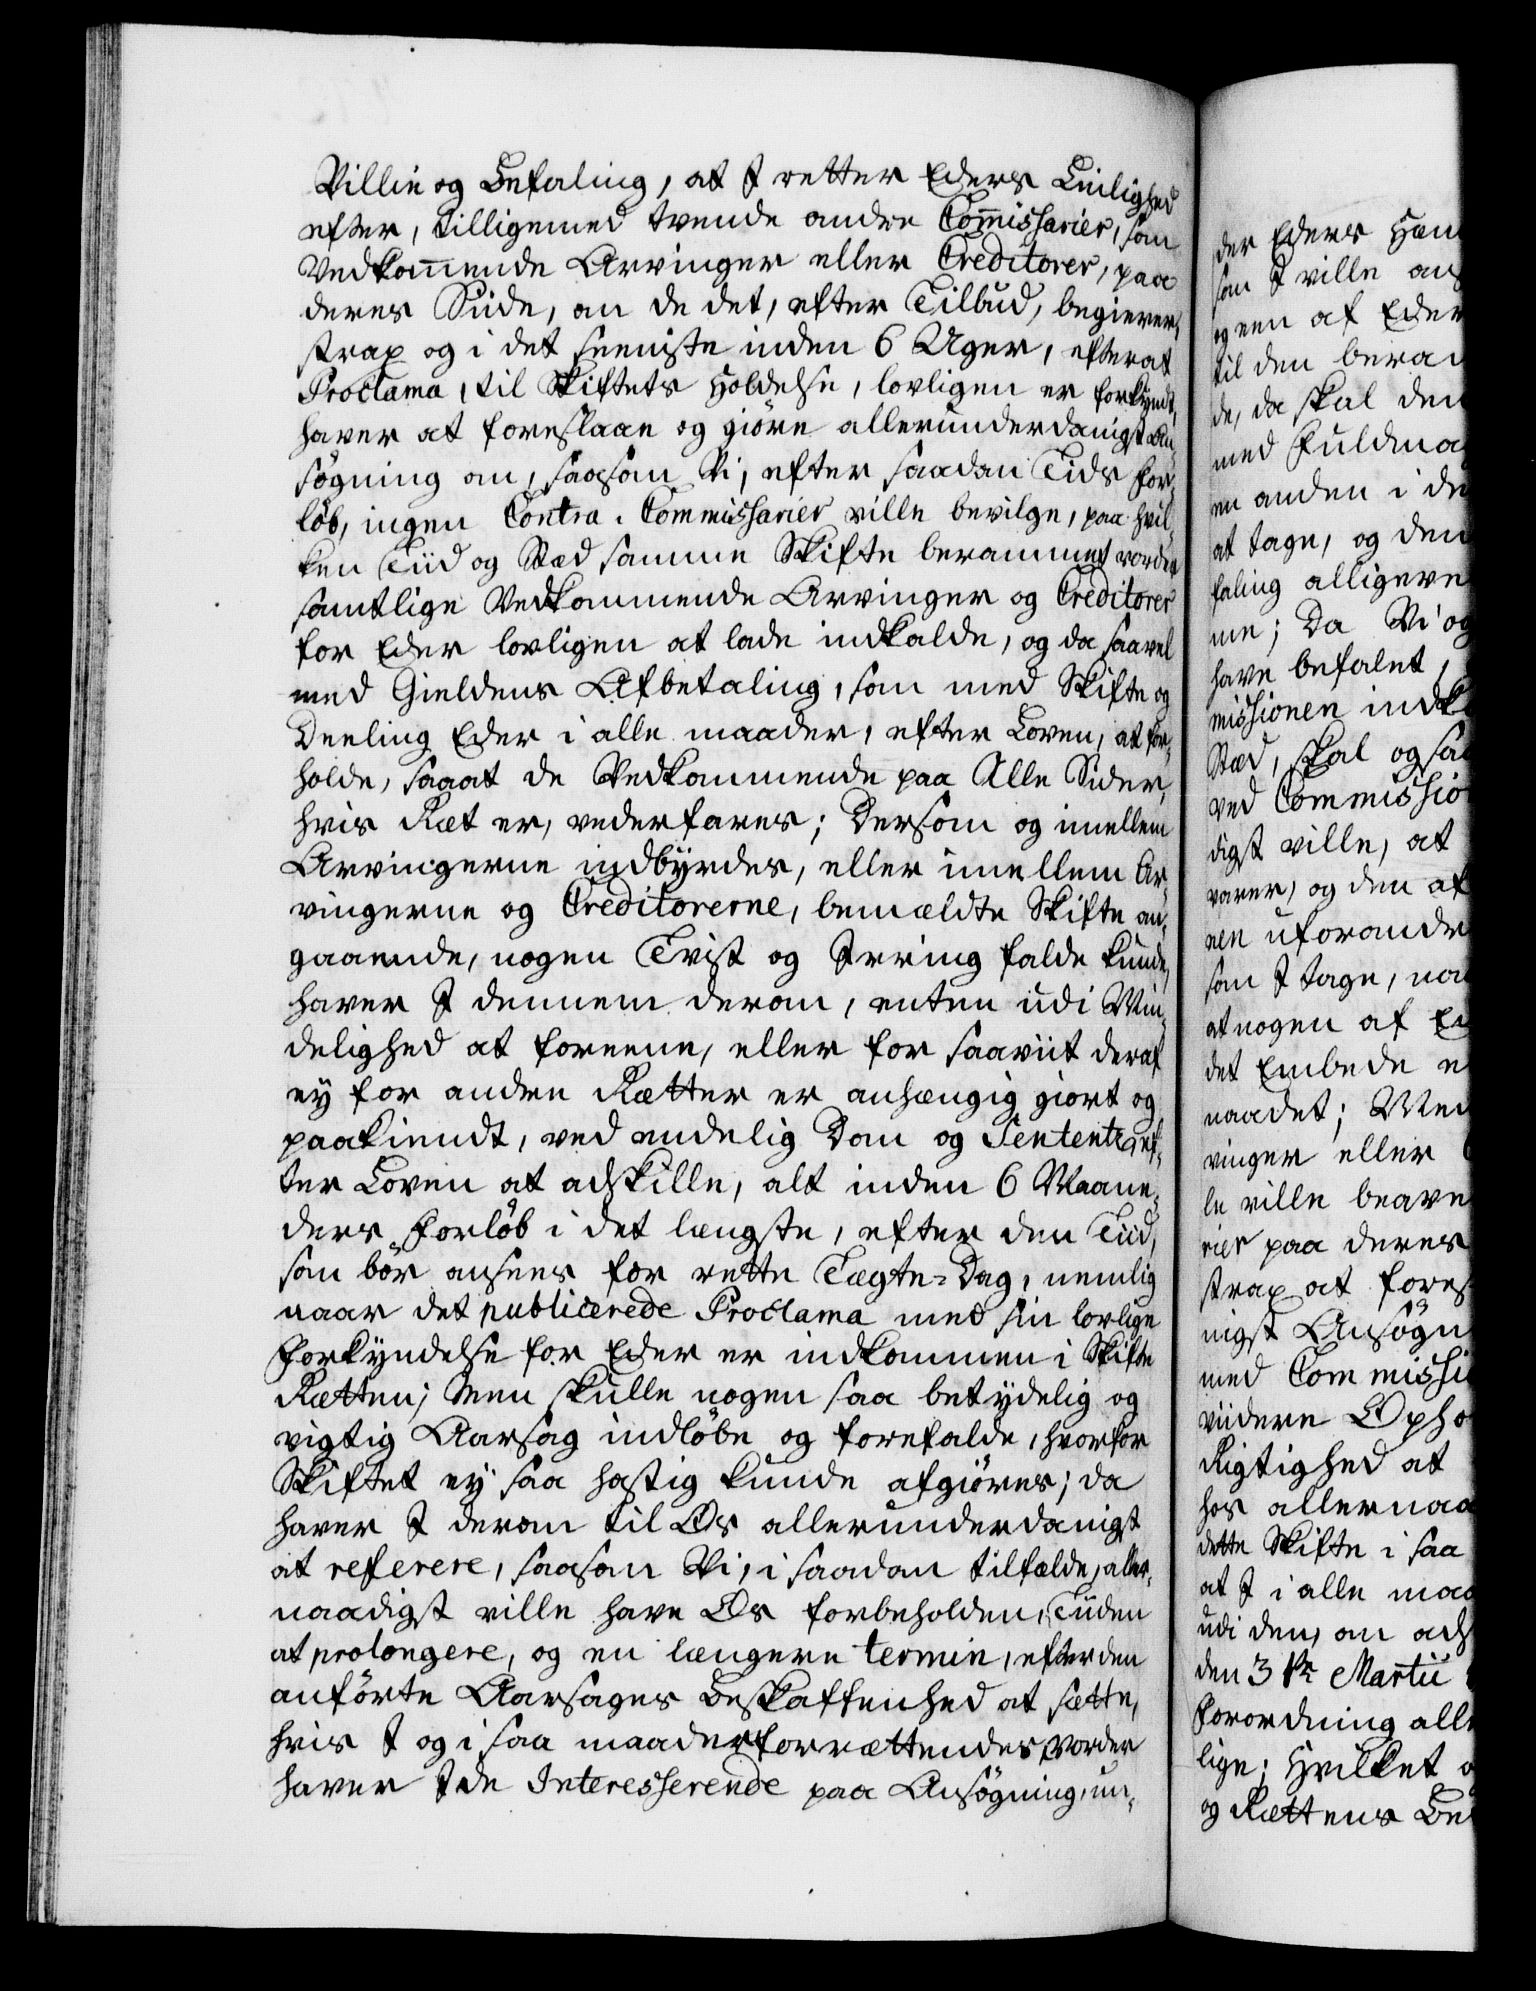 Villie og Befaling, at I retter Eders Leilighed
efter, tilligemed tvende andre Com̄issarier, som
Vedkom̄ende Arvinger eller Creditorer, paa
deres Siide, om de det, efter Tilbud, begierer,
strax og i det seeniste inden 6 Uger, efterat
Proclama, til Skiftets Holdelse, lovligen er forkyndt,
haver at foreslaae og giöre allerunderdanigst An-
sögning om, saasom Vi, efter saadan Tids For-
löb, ingen Contra-Commissarier ville bevilge, paa hvil-
ken Tiid og Stæd samme Skifte berammet vorder
samtlige Vedkommende Arvinger og Creditorer
for Eder lovligen at lade indkalde, og da saavel
med Gieldens Afbetaling, som med Skifte og
Deeling Eder i alle maader, efter Loven, at for-
holde, saaat de Vedkommende paa Alle Sider,
hvis Ræt er, vederfares; Dersom og imellem
Arvingerne indbyrdes, eller imellem Ar-
vingerne og Creditorerne, bemældte Skifte an-
gaaende, nogen Tvist og Irring falde kunde,
haver I dennem derom, enten udi Min-
delighed at foreene, eller for saaviit deraf
ey for andre Rætter er anhængig giort og
paakiendt, ved endelig Dom og Sententz, ef-
ter Loven at adskille, alt inden 6 Maane-
ders Forlöb i det længste, efter den Tiid,
som bör ansees for rette Tægte-Dag, nemlig
naar det publicerede Proclama med sin lovlige
Forkyndelse for Eder er indkommen i Skifte
Rætten; Men skulle nogen saa betydelig og
vigtig Aarsag indlöbe og forefalde, hvorfor
Skiftet ey saa hastig kunde afgiöres; da
haver I derom til Os allerunderdanigst
at referere, saasom Vi, i saadan tilfælde, aller-
naadigst ville have Os forbeholden, Tiiden
at prolongere, og en længere termin, efter den
anförte Aarsages Beskaffenhed at sætte,
hvis I og i saa maader forrættendes vorder
haver I de Interesserende paa Ansögning, un-
der Eders Hæn
som I ville an
og een af Eder
til den beram
de, da skal den
med Fuldma
en anden i de
at tage, og den
faling alligeve
me; Da Vi og
have befalet,
missionen indk
Stæd, skal og saa
ved Commissio
digst ville, at
varer, og den af
nen uforandr
som I tage, naa
at nogen af Ed
det Embede e
naadet; Men
vinger eller
le ville beave
rier paa deres
strax at fores
nigst Ansögn
med Commissi
viidere Opho
Rigtighed at
hos allernaa
dette Skifte i saa
at I i alle maa
udi den, om ads
den 31te Martii
Forordning alle
lige; Hvilket o
og Rættens Be